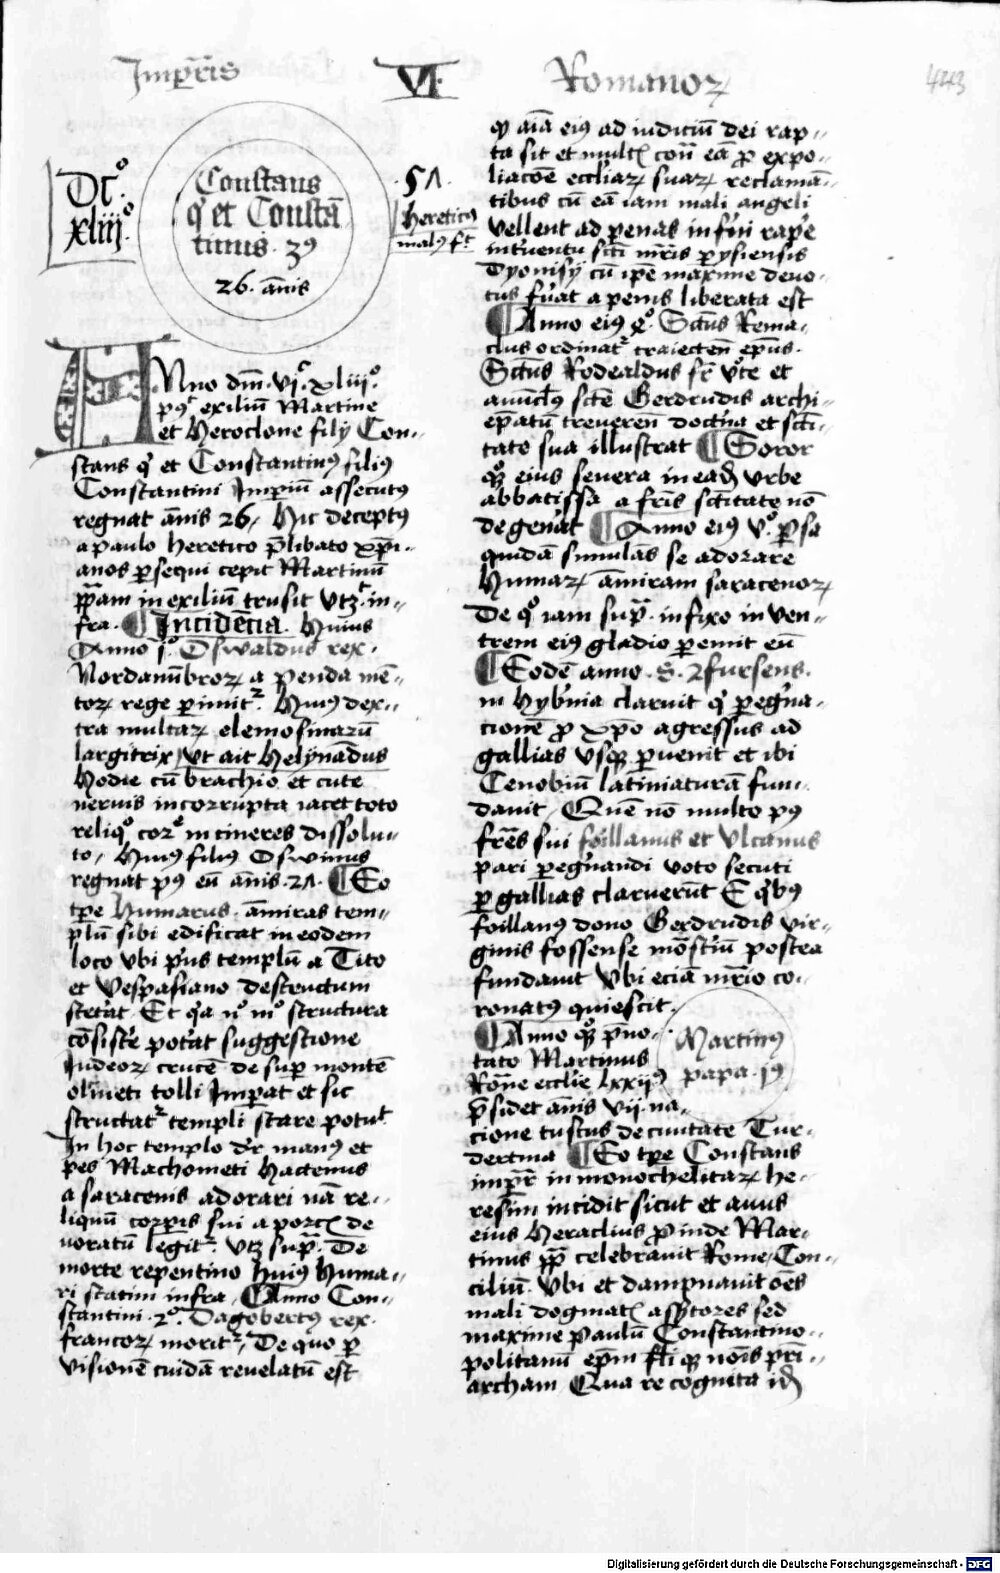 Imꝑr̄is
VI
Romanoꝝ
443
Dcͦ.
xliijͦ
Constans
q̄ et Constā
tinus. 3ꝰ
26. ānis
5Λ.
hereticꝰ
malꝰ ft̄
Anno dnī. VIͨ xliijͦ.
pꝰ exiliū Martine
et Heroclone filij Con-
stans q̄ et Constantinꝰ filiꝰ
Constantini Imꝑiū assecutꝰ
regnat ānis 26, Hic deceptꝰ
a paulo heretico p̄libato xp̄i-
anos ꝑsequi cepit Martinū
pp̄am in exiliū trusit vtꝫ in-
fra. ¶ Incidēcia. Huiꝰ
Anno jͦ. Oswaldus rex.
Nordanūbroꝝ a penda mē-
toꝝ rege ꝑimit̉. Huiꝰ dex-
tra multaꝝ elemosinarū
largitrix, vt ait Helynādus
Hodie cū brachio et cute
neruis incorrupta iacet toto
reliqͦ corꝑe in cineres dissolu-
to, Huiꝰ filiꝰ Oswinus
regnat pꝰ eū ānis. 2Λ. ¶ Eo
tꝑe Humarus. āmiras tem-
plū sibi edificat in eodem
loco vbi pͥus templū a Tito
et Vespasiano destructum
steterat. Et qͥa nͦ mͦ structura
cōsistere poterat suggestione
Iudeoꝝ crucē de super montē
oliueti tolli Imꝑat et sic
structat̉ templi stare potuit
In hoc templo dr̄ manꝰ et
pes Machometi Hactenus
a saracenis adorari nā re-
liquū corꝑis sui a porcꝭ de
uoratū legit̉. vtꝫ supͣ. De
morte repentino huiꝰ Huma-
ri statim infra, ¶ Anno Con-
stantini. 2ͦ. Dagobertꝰ rex
francoꝝ morit̉, De quo ꝑ
visionē cuidā reuelatū est
ꝙ aīa eiꝰ ad iudiciū dei rap-
ta sit et multꝭ cont̄ eā ꝓ expo-
liacōe eccl̄iaꝝ suaꝝ reclamā-
tibus cū eā iam mali angeli
vellent ad penas inferni rapere
interuentu scī mr̄is ꝑysiensis
Dyonisij cū ip̄e maxime deuo-
tus fuerat a penis liberata est
¶ Anno eiꝰ Sctūs Rema-
clus ordinat̉ traiecten̄ ep̄us.
Sctūs Rodealdus fr̄ vͦte et
auūcl̄ꝰ scte Gerdrudis archi-
ep̄atū treueren̄ doctͥna et scti-
tate sua illustrat ¶ Soror
qꝫ eius seuera in eadē vrbe
abbatissa a fr̄is sctitate nō
degenerat ¶ Anno eiꝰ Vͦ. ꝑsa
quidā simulās se adorare
Humaꝝ āmiram saracenoꝝ
De qͦ iam supͣ. infixo in ven-
trem eiꝰ gladio ꝑemit eū
¶ Eodē anno. S. 2fursens.
in Hybernia claruit qͥ ꝑegͥna-
cionē ꝓ xp̄o agressus ad
gallias vsqꝫ ꝑuenit et ibi
Cenobiū latiniaturā fun-
dauit, Quē nō multo pꝰ
fr̄es sui foillanus et Vlcanus
pari ꝑegͥnandi voto secuti
ꝑ gallias claruerūt E qͥbꝰ
foillanꝰ dono Gerdrudis vir-
ginis fossense mōsteriū postea
fundauit Vbi eciā mr̄io co-
ronatꝰ quiescit.
¶ Anno qꝫ p̄no-
tato Martinus
Rōne eccl̄ie lxxiijꝰ
p̄sidet ānis vij. na-
Martinꝰ
papa. jꝰ
cione tuscus de ciuitate Tur-
dertina ¶ Eo tꝑe Constans
imꝑr̄ in monochelitaꝝ he-
resim incidit sicut et auus
eius Heraclius ꝓinde Mar-
tinus pp̄ celebrauit Rome Con-
ciliū. Vbi et dampnauit oēs
mali dogmatꝭ assertores sed
maxime Paulū Constantino-
politanū ep̄m nōis pͥri-
archam Qua re cognita id